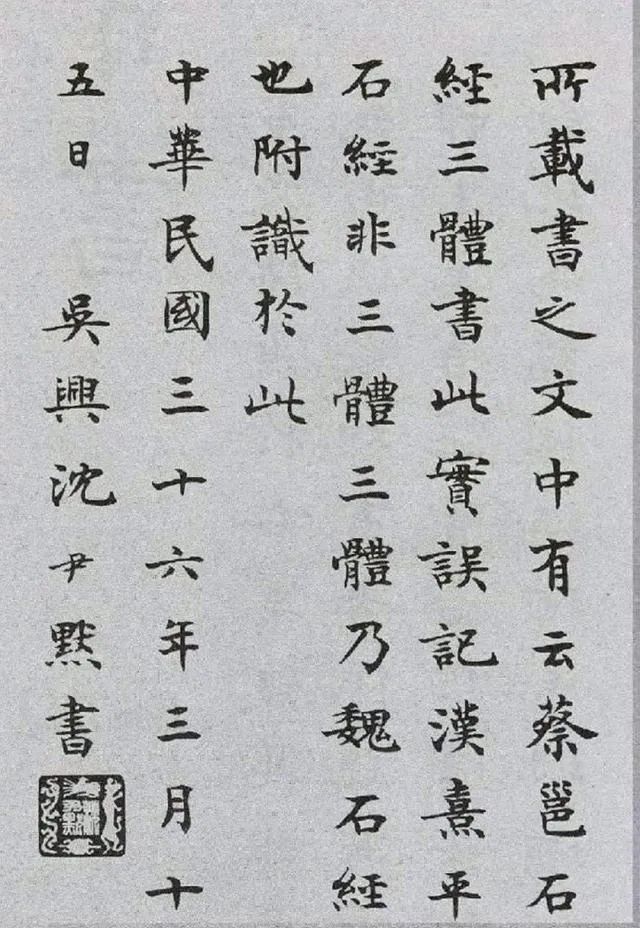 所載書之文中有云蔡邕石
經三體書此實誤記漢熹平
石經非三體三體乃魏石經
也附識於此
中華民國三十六年三月十
五日 吳興沈尹默書